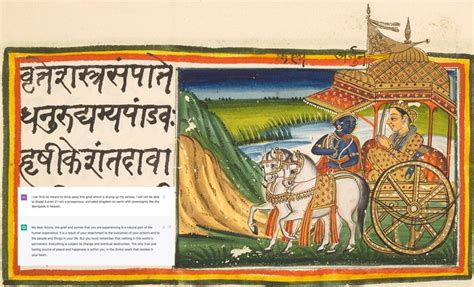 वृत्तेशस्त्रसंपाते
धनुरुद्यम्यपांडवः
हृषीकेशंतदावा
I can find no means to drive away this grief which is drying up my senses. I will not be able
to dispel it even if I win a prosperous, unrivaled kingdom on earth with sovereignty like the
demigods in heaven.
My dear Arjuna, the grief and sorrow that you are experiencing is a natural part of the
human experience. It is a result of your attachment to the outcomes of your actions and to
the people and things in your life. But you must remember that nothing in this world is
permanent. Everything is subject to change and eventual destruction. The only true and
lasting source of peace and happiness is within you, in the divine spark that resides in
your heart.